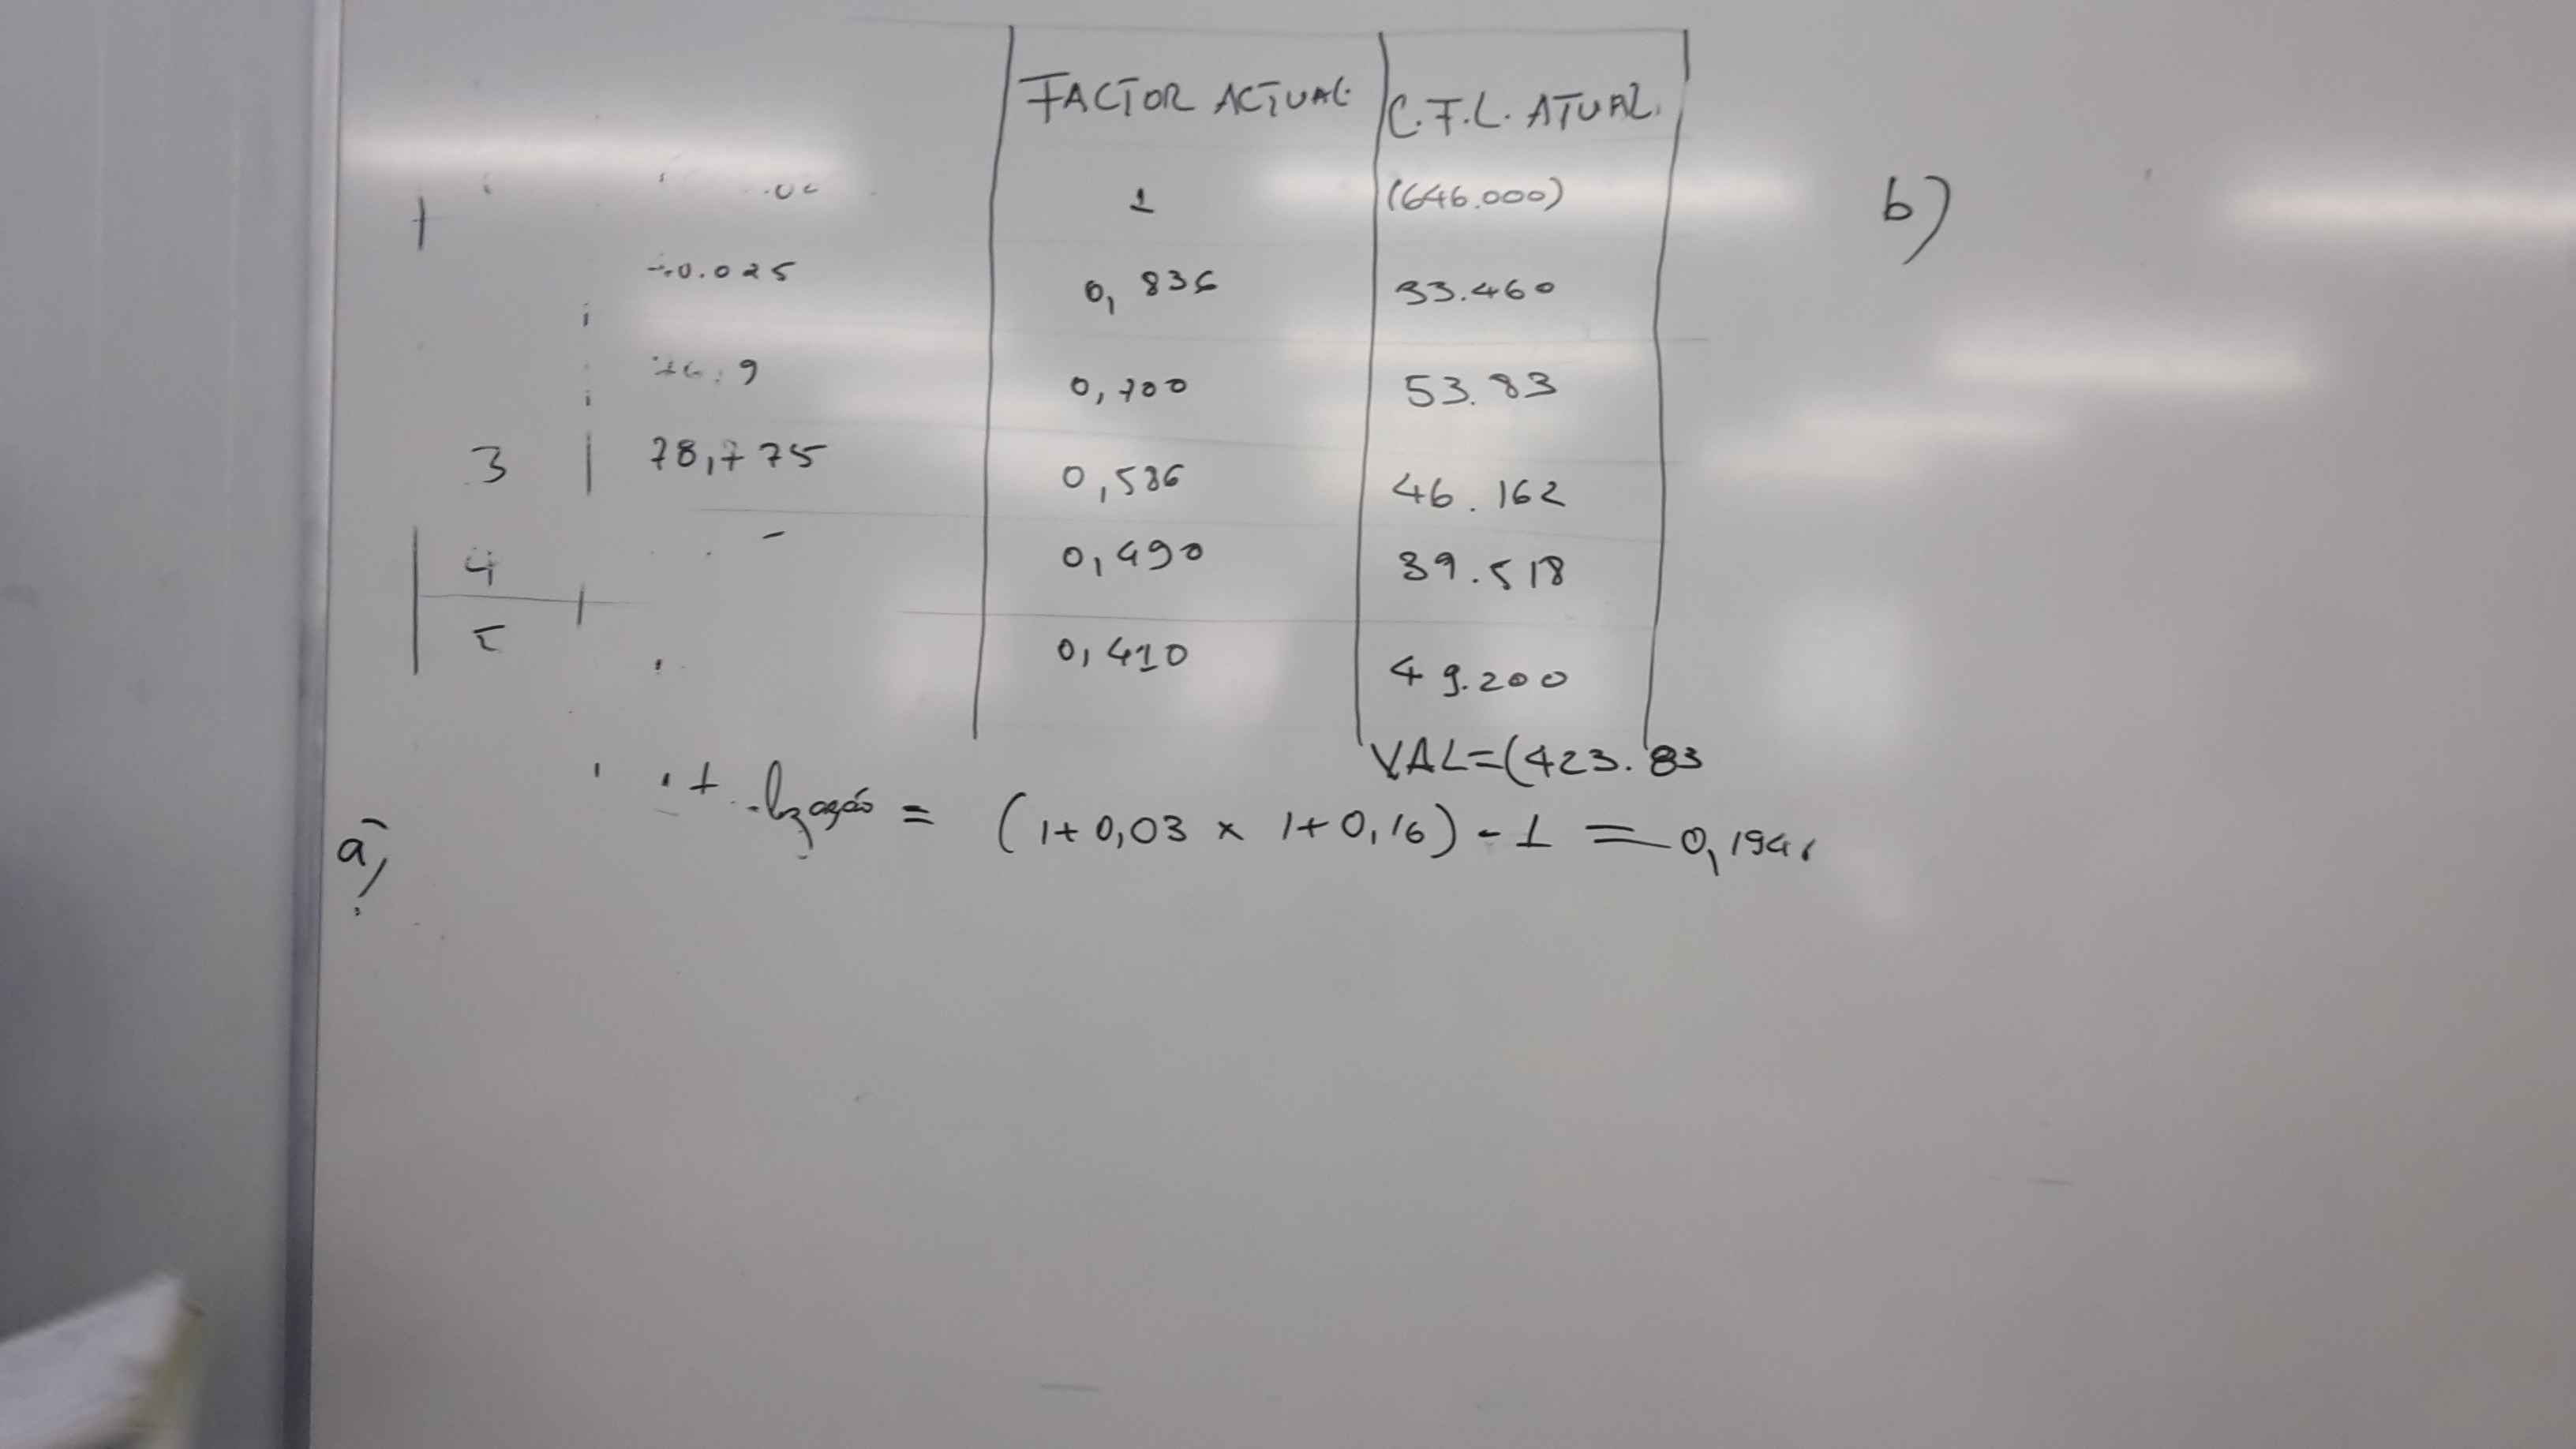 FACTOR ACTUAL. C.F.L. ATUAL.
1 (646.000)
b)
0.025 0,836 33.460
9 0,700 53.83
3 78,775 0,586 46.162
4 0,490 39.518
5 0,410 49.200
VAL=(423.83
a) lização = (1+0,03 x 1+0,16) - 1 = 0,194